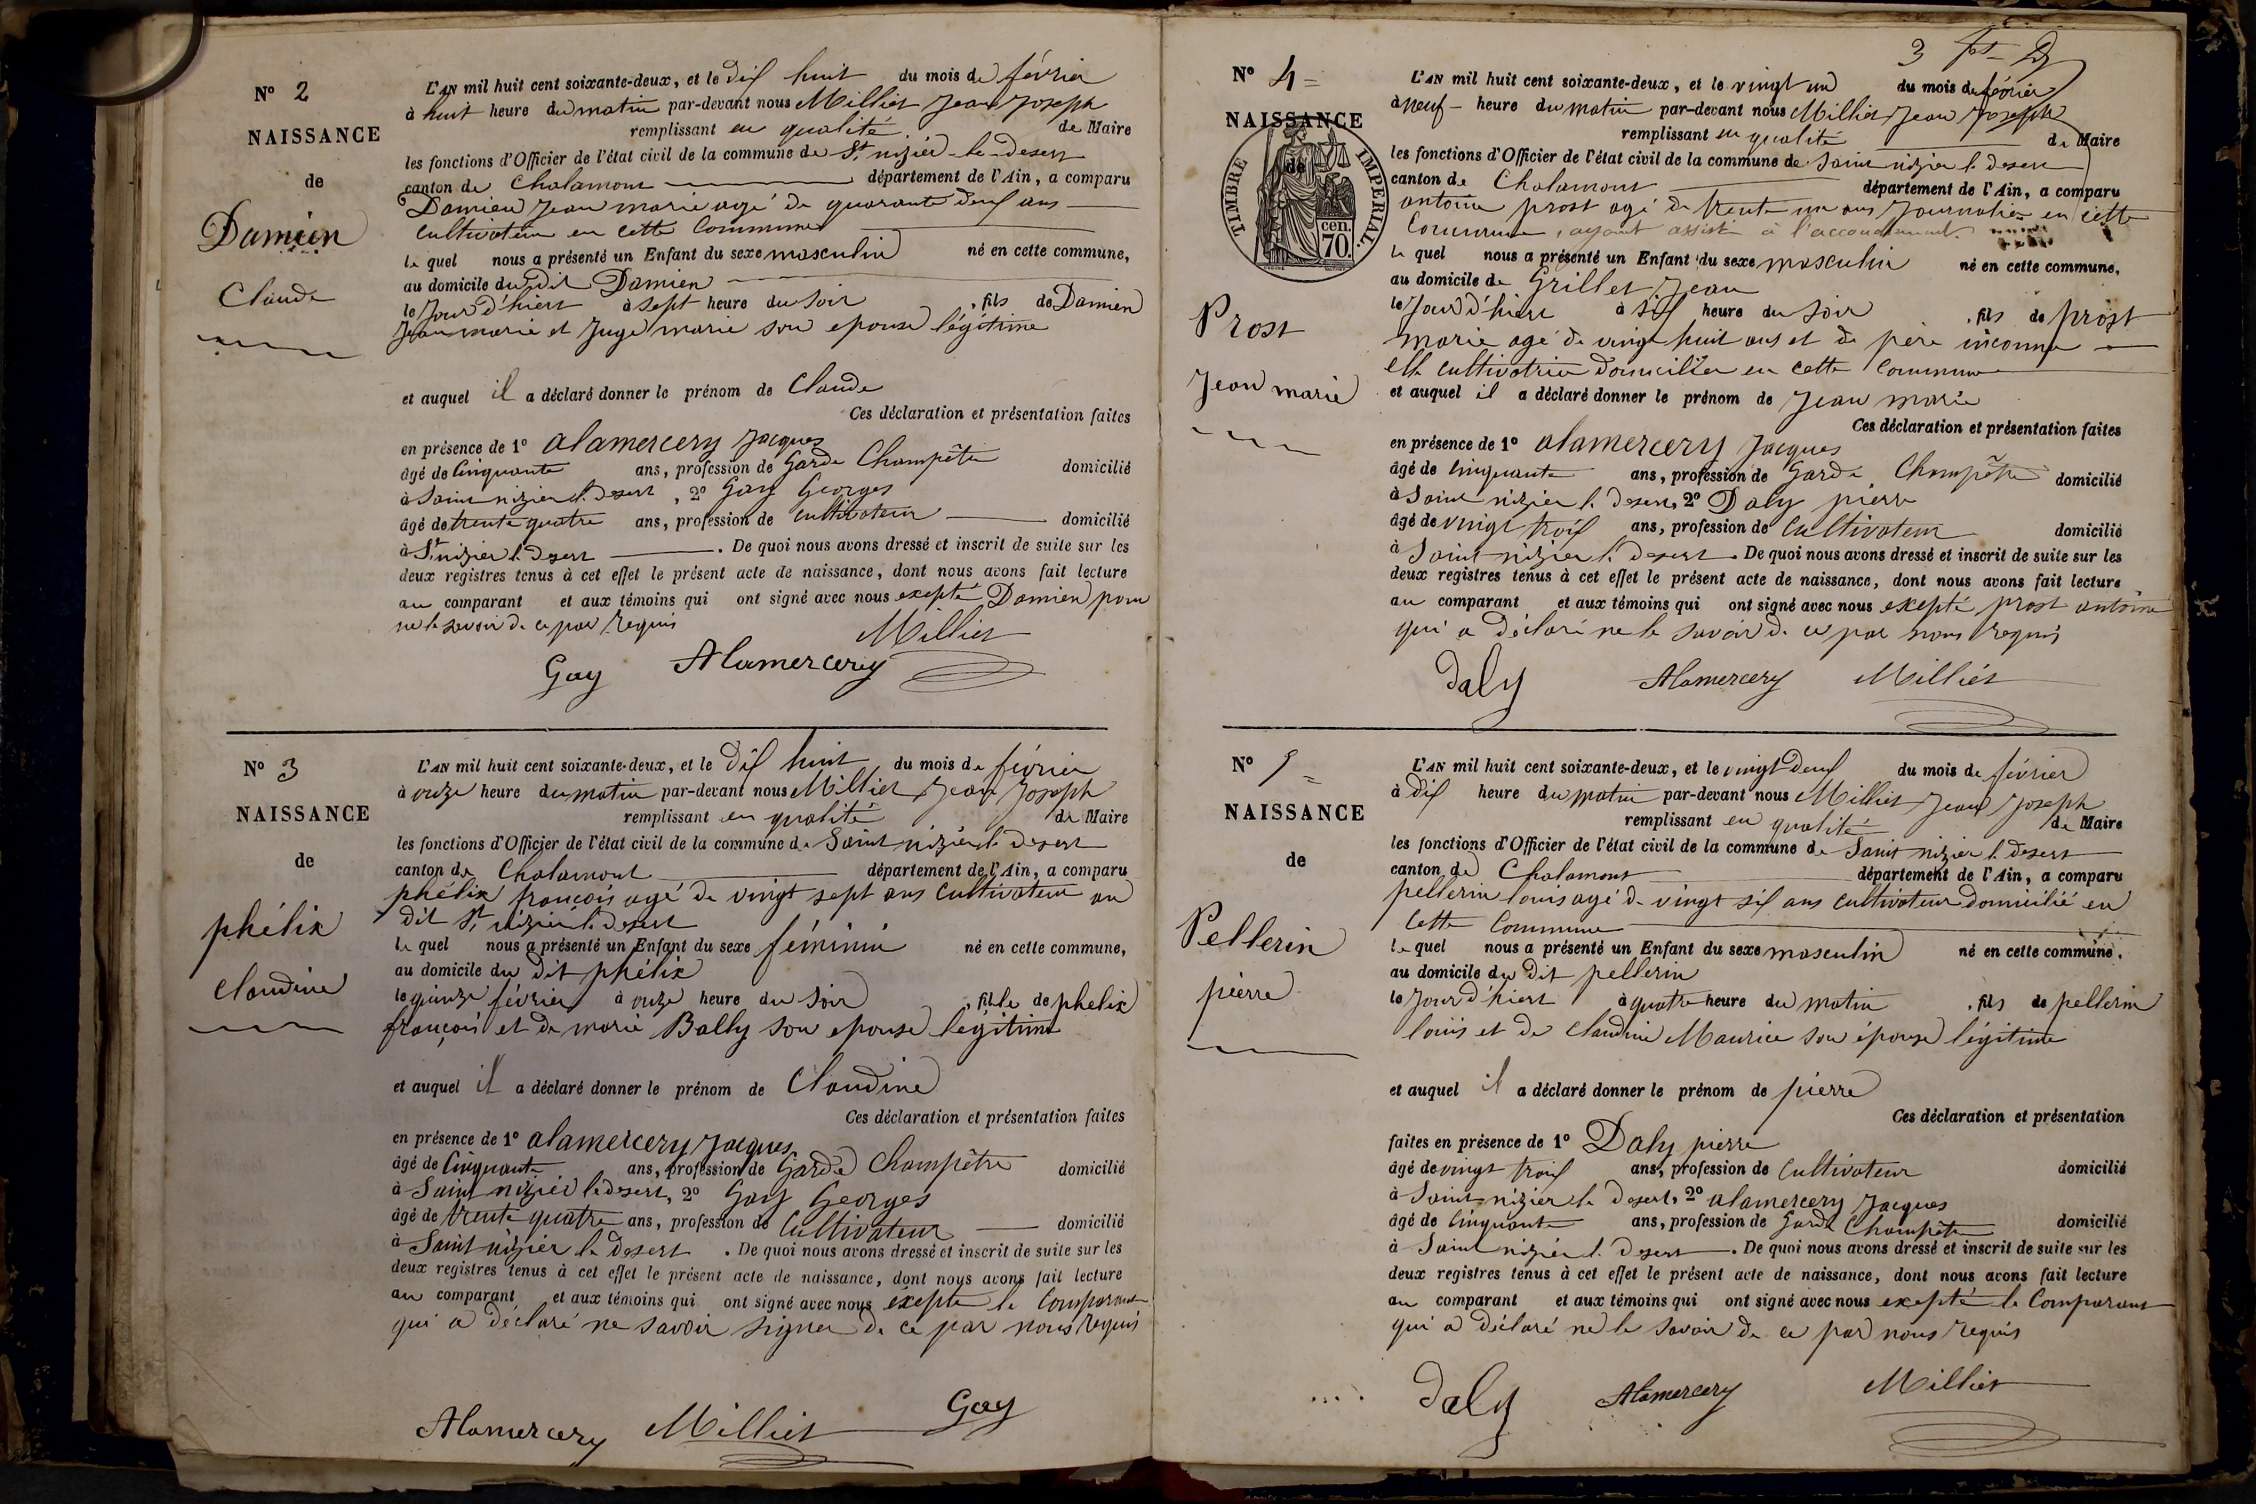 N° 2
NAISSANCE
de
Damien
Claude
L'AN mil huit cent soixante-deux, et le dix huit du mois de février
à huit heure du matin par-devant nous Milliet Jean Joseph
remplissant en qualité de Maire
les fonctions d'Officier de l'état civil de la commune de St nizier le Desert
canton de Chalamont département de l'Ain, a comparu
Damien Jean marie agé de quarante deux ans
cultivateur en cette Commune
le quel nous a présenté un Enfant du sexe masculin né en cette commune,
au domicile du dit Damien
le Jour d'hiert à sept heure du soir, fils de Damien
Jean marie et Juge marie son epouse légitime
et auquel il a déclaré donner le prénom de Claude
Ces déclaration et présentation faites
en présence de 1° alamercery Jacques
âgé de Cinquante ans, profession de Garde Champêtre domicilié
à Saint nizier le desert, 2° Gay Georges
âgé de trente quatre ans, profession de cultivateur domicilié
à St nizier le desert. De quoi nous avons dressé et inscrit de suite sur les
deux registres tenus à cet effet le présent acte de naissance, dont nous avons fait lecture
au comparant et aux témoins qui ont signé avec nous exepté Damien pour
ne le savoir de ce par requis
Milliet
Gay Alamercery
N° 3
NAISSANCE
de
phélix
claudine
L'AN mil huit cent soixante-deux, et le dix huit du mois de février
à onze heure du matin par-devant nous Milliet Jean Joseph
remplissant en qualité de Maire
les fonctions d'Officier de l'état civil de la commune de Saint nizier le desert
canton de Chalamont département de l'Ain, a comparu
phélix françois agé de vingt sept ans cultivateur au
dit St nizier le desert
le quel nous a présenté un Enfant du sexe féminin né en cette commune,
au domicile du dit phélix
le quinze février à onze heure du soir, fille de phelix
françois et de marie Bally son epouse légitime
et auquel il a déclaré donner le prénom de Claudine
Ces déclaration et présentation faites
en présence de 1° alamercery Jacques
âgé de Cinquante ans, profession de Garde Champêtre domicilié
à Saint nizier le desert, 2° Gay Georges
âgé de trente quatre ans, profession de Cultivateur domicilié
à Saint nizier le desert. De quoi nous avons dressé et inscrit de suite sur les
deux registres tenus à cet effet le présent acte de naissance, dont nous avons fait lecture
au comparant et aux témoins qui ont signé avec nous exepté le Comparant
qui a déclaré ne savoir signer de ce par nous requis
Alamercery Milliet Gay
3
N° 4
NAISSANCE
de
TIMBRE IMPERIAL.
cen.
70.
Prost
Jean marie
L'AN mil huit cent soixante-deux, et le vingt un du mois de février
à neuf heure du matin par-devant nous Milliet Jean Joseph
remplissant en qualité de Maire
les fonctions d'Officier de l'état civil de la commune de Saint nizier le desert
canton de Chalamont département de l'Ain, a comparu
antoine prost agé de trente un ans Journalier en cette
Commune, ayant assisté à l'accouchement.
le quel nous a présenté un Enfant du sexe masculin né en cette commune,
au domicile de Grillet Jean
le Jour d'hiert à six heure du soir, fils de prost
marie agé de vingt huit ans et de père inconnu
elle cultivatrice domiciliée en cette Commune
et auquel il a déclaré donner le prénom de Jean marie
Ces déclaration et présentation faites
en présence de 1° alamercery Jacques
âgé de Cinquante ans, profession de Garde Champêtre domicilié
à Saint nizier le desert, 2° Daly pierre
âgé de vingt troix ans, profession de Cultivateur domicilié
à Saint nizier le desert. De quoi nous avons dressé et inscrit de suite sur les
deux registres tenus à cet effet le présent acte de naissance, dont nous avons fait lecture
au comparant et aux témoins qui ont signé avec nous exepté prost antoine
qui a déclaré ne le savoir de ce par nous requis
Daly Alamercery Milliet
N° 5
NAISSANCE
de
Pellerin
pierre
L'AN mil huit cent soixante-deux, et le vingt deux du mois de février
à dix heure du matin par-devant nous Milliet Jean Joseph
remplissant en qualité de Maire
les fonctions d'Officier de l'état civil de la commune de Saint nizier le desert
canton de Chalamont département de l'Ain, a comparu
pellerin louis agé de vingt six ans cultivateur domicilié en
Cette Commune
le quel nous a présenté un Enfant du sexe masculin né en cette commune.
au domicile du dit pellerin
le Jour d'hiert à quatre heure du matin, fils de pellerin
louis et de Claudine Maurice son épouse légitime
et auquel il a déclaré donner le prénom de pierre
Ces déclaration et présentation
faites en présence de 1° Daly pierre
âgé de vingt troix ans, profession de Cultivateur domicilié
à Saint nizier le desert, 2° alamercery Jacques
âgé de Cinquante ans, profession de Garde Champêtre domicilié
à Saint nizier le desert. De quoi nous avons dressé et inscrit de suite sur les
deux registres tenus à cet effet le présent acte de naissance, dont nous avons fait lecture
au comparant et aux témoins qui ont signé avec nous exepté le Comparant
qui a déclaré ne le savoir de ce par nous requis
Daly Alamercery Milliet